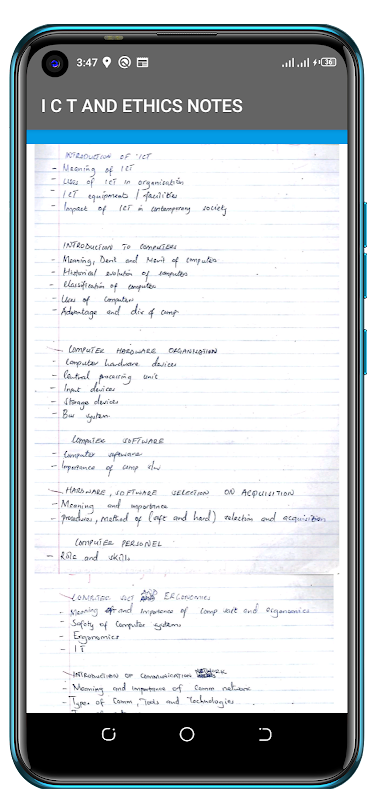 3:47
36
I C T AND ETHICS NOTES
INTRODUCTION OF ICT
- Meaning of ICT
- Uses of ICT in organisation
- ICT equipments / facilities
- Impact of ICT in contemporary society
INTRODUCTION TO COMPUTERS
- Meaning, Demt and Merit of computer
- Historical evolution of computers
- Classification of computer
- Uses of computer
- Advantage and dis of comp
- COMPUTER HARDWARE ORGANISATION
- Computer hardware devices
- Central processing unit
- Input devices
- Storage devices
- Bus system
COMPUTER SOFTWARE
- Computer software
- Importance of comp s/w
- HARDWARE, SOFTWARE SELECTION ON ACQUISITION
- Meaning and importance
- procedures, method of (soft and hard) selection and acquisition
COMPUTER PERSONEL
- Role and skills
COMPUTER AND ERGONOMICS
- Meaning of and importance of Comp and ergonomics
- Safety of Computer systems
- Ergonomics
- IT
- INTRODUCTION OF COMMUNICATION NETWORK
- Meaning and importance of Comm network
- Types of Comm, Tools and Technologies